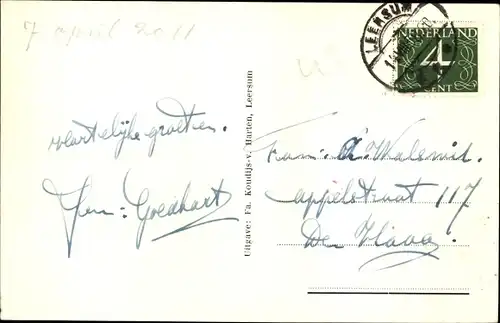 7 april 2011
LEERSUM
NEDERLAND
4
CENT
Hartelijke groeten.
Fam: Goedhart
Uitgave: Fa. Koudijs-v. Harten, Leersum
Fam:
appelstraat 117
Den Haag.